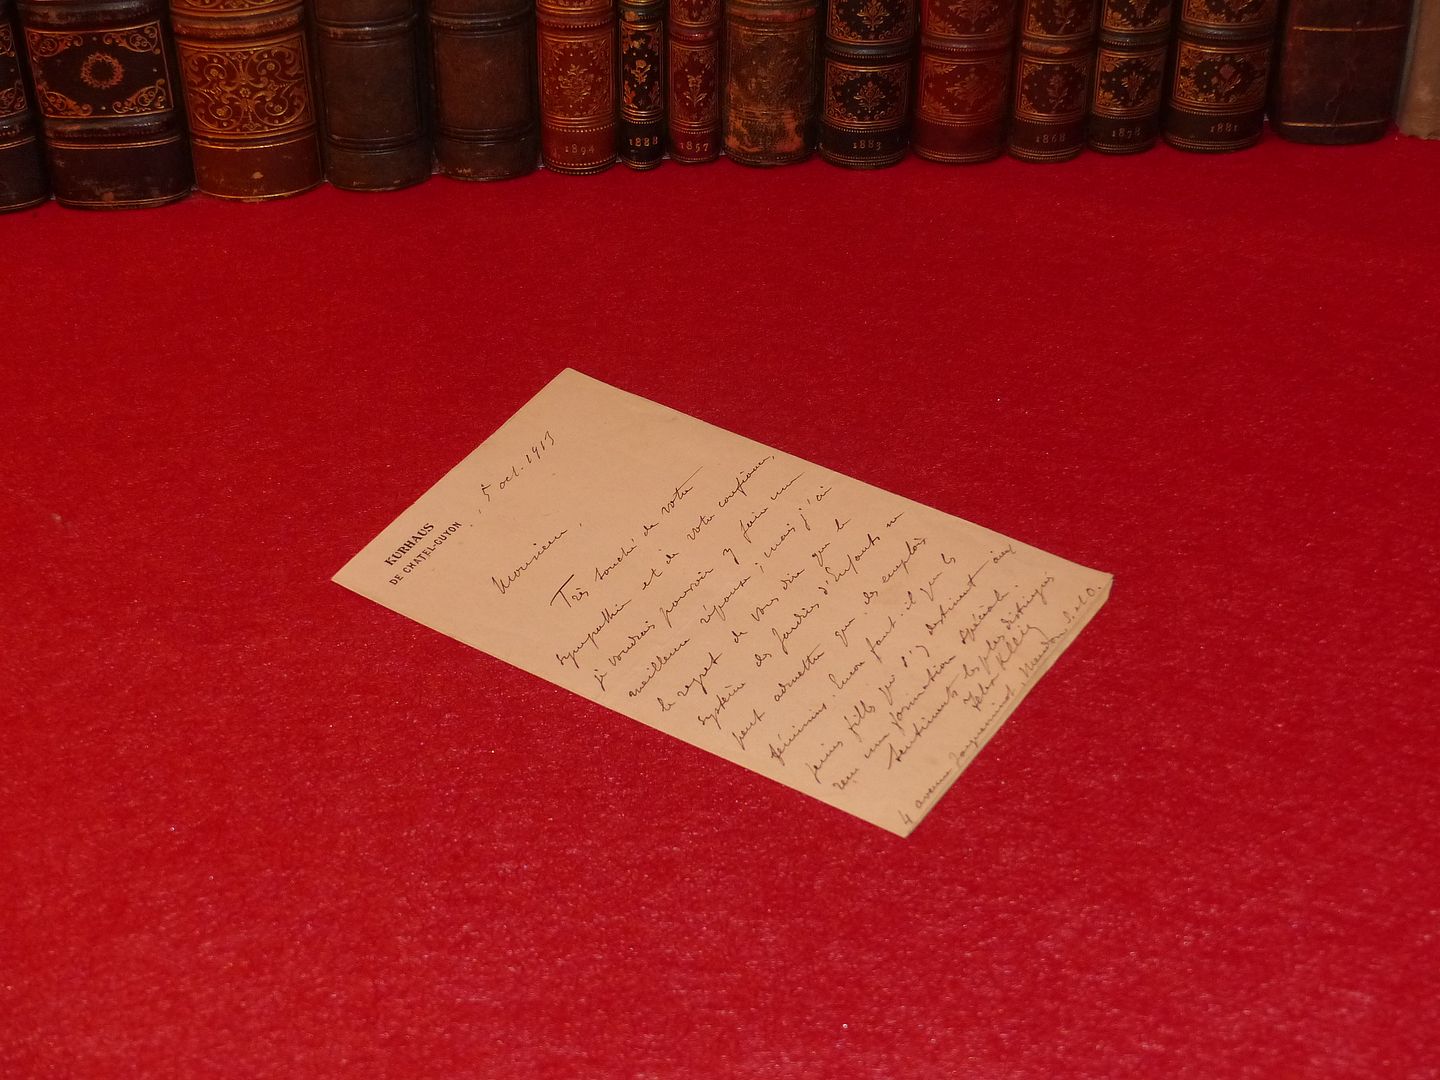 1894
1888
1857
1883
1868
1878
1881
KURHAUS
DE CHATEL-GUYON
5 oct. 1913
Monsieur,
Très touché de votre
sympathie et de votre confiance,
je voudrais pouvoir y faire une
meilleure réponse ; mais j'ai
le regret de vous dire que le
système des Jardins d'Enfants ne
peut admettre que des emplois
féminins. Encore faut-il que les
jeunes filles qui s'y destinent aient
reçu une formation spéciale
Sentiments les plus distingués
Félix Klein
4 avenue Jacqueminot Meudon S. et O.